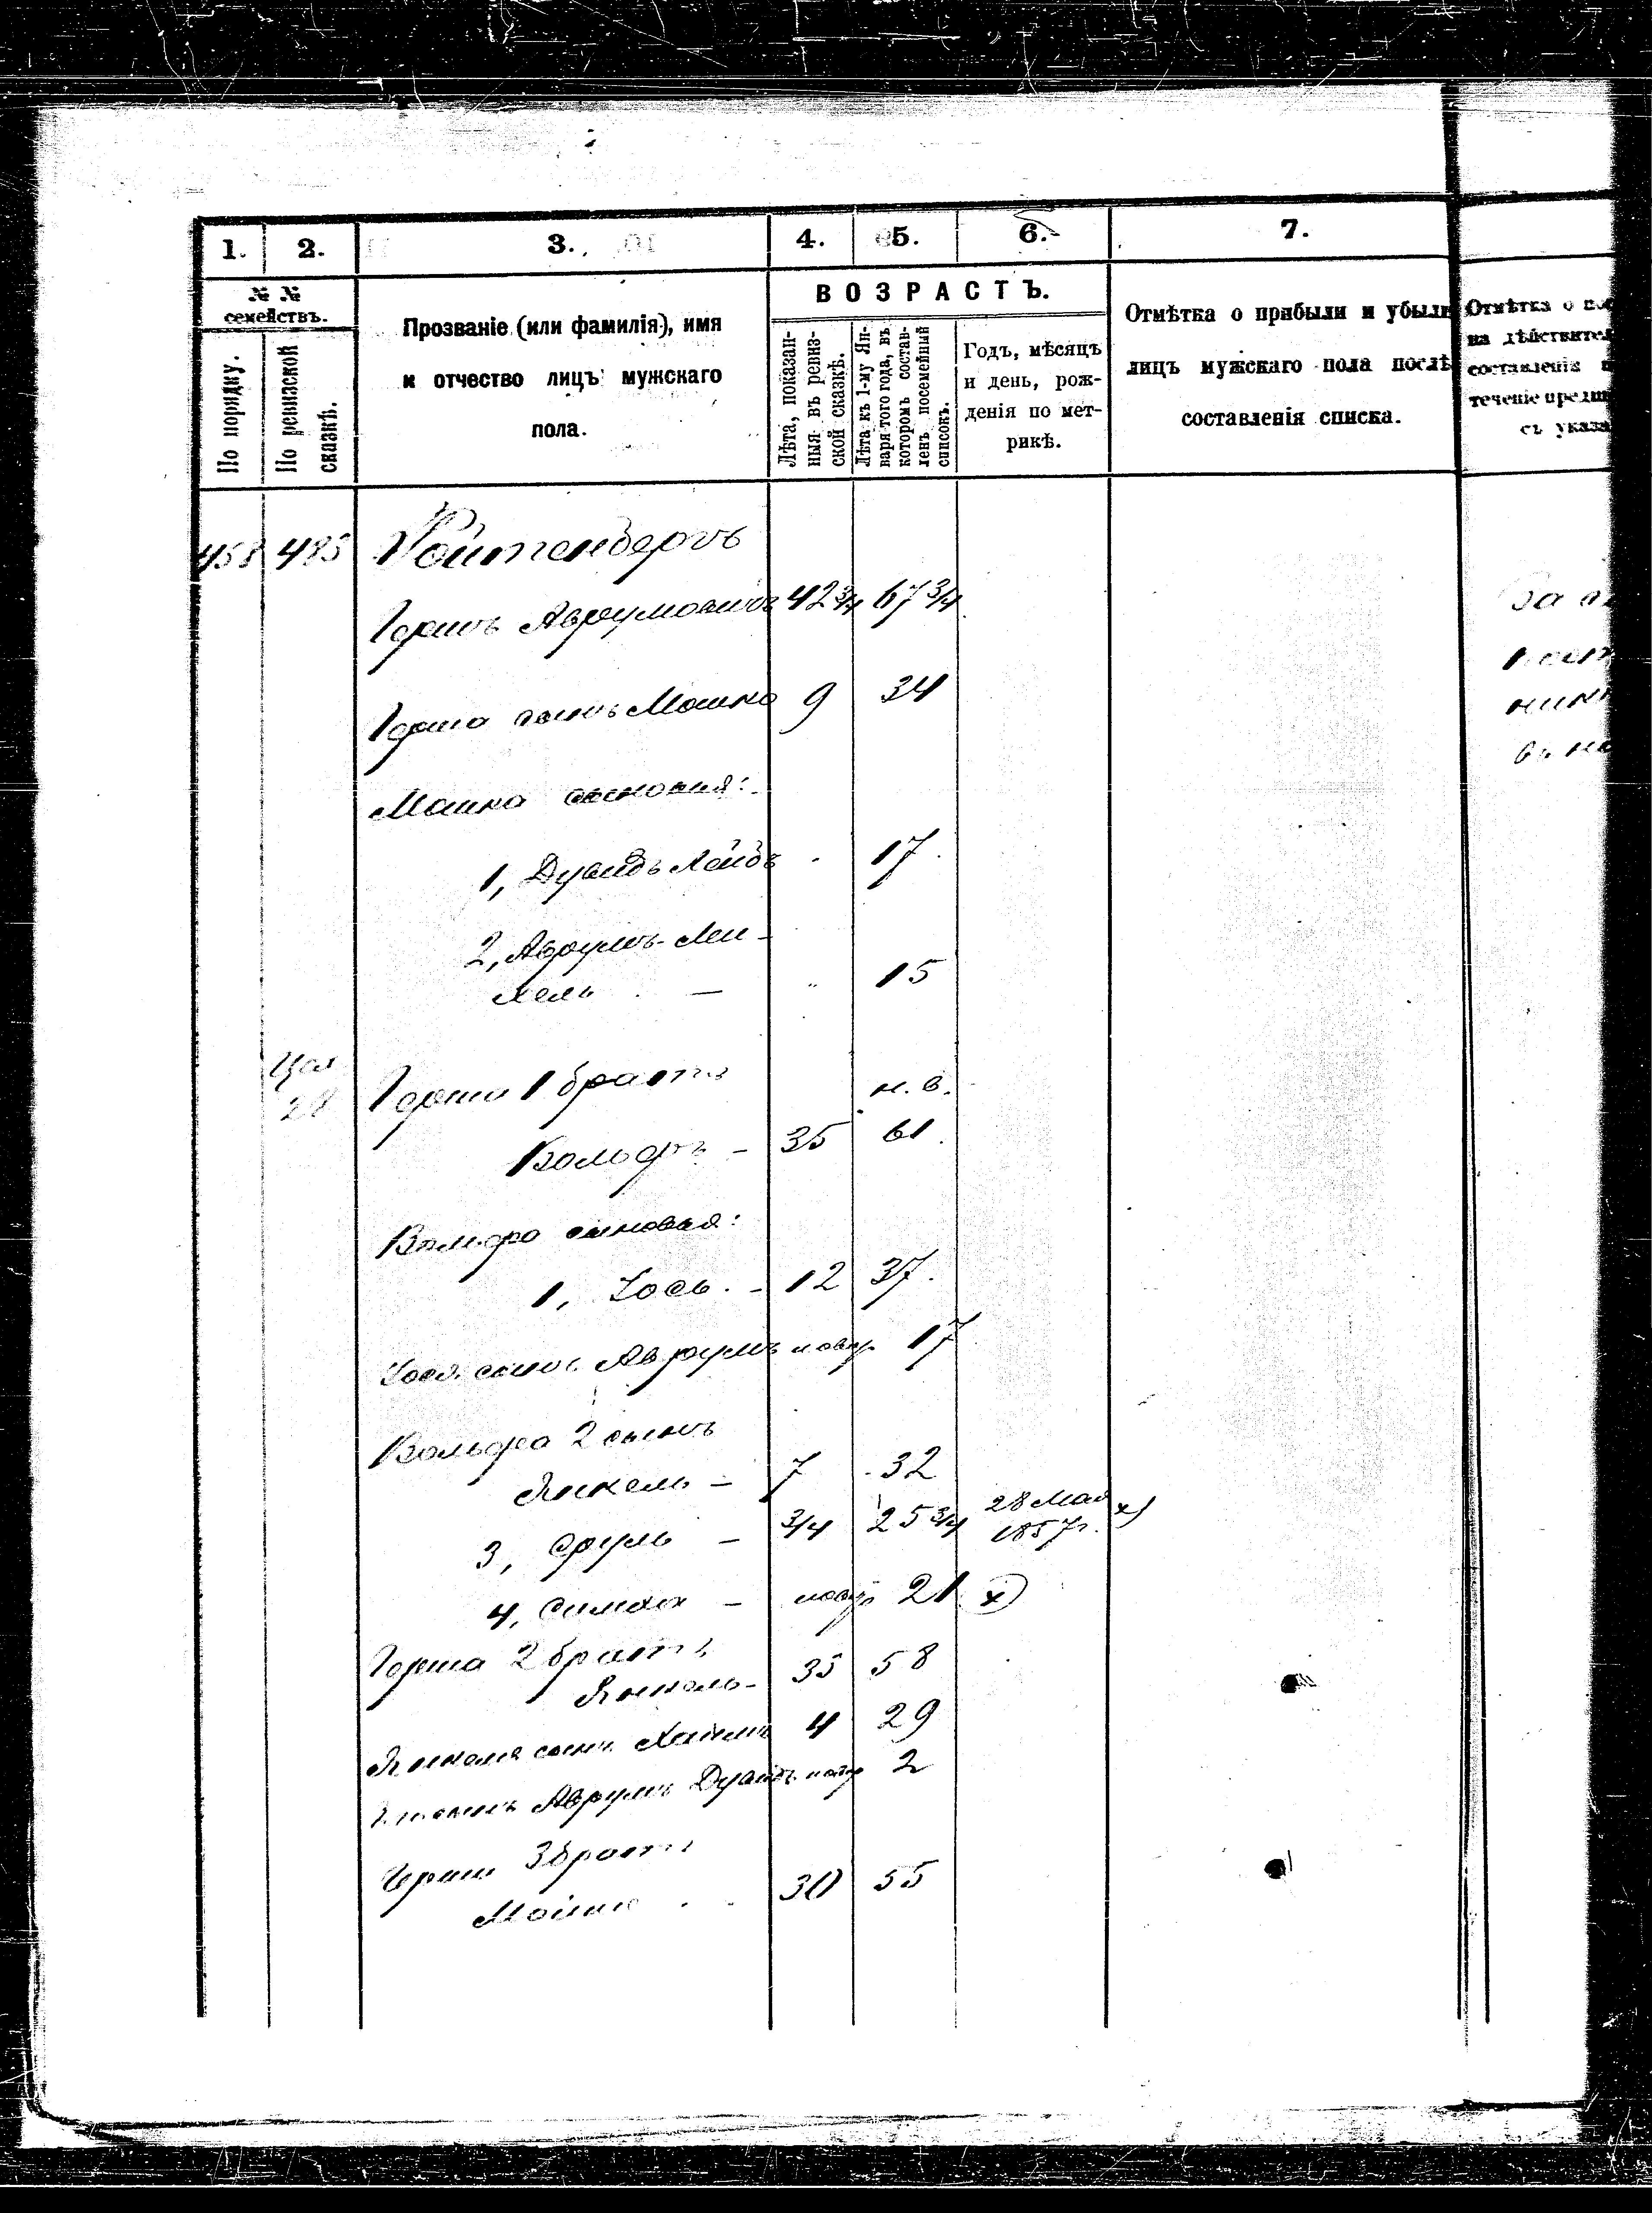 1. 2. 3. 4. 5. 6. 7.
№ №
семействъ.
По порядку.
По ревизской
сказкѣ.
Прозваніе (или фамилія), имя
и отчество лицъ мужскаго
пола.
ВОЗРАСТЪ.
Лѣта, показан-
ныя въ ревиз-
ской сказкѣ.
Лѣта къ 1-му Ян-
варя того года, въ
которомъ состав-
ленъ посемейный
списокъ.
Годъ, мѣсяцъ
и день, рож-
денія по мет-
рикѣ.
Отмѣтка о прибыли и убыли
лицъ мужскаго пола послѣ
составленія списка.
Отмѣтка о
на дѣйствител
составленія
теченіе
съ указа
458 485 Ройтенбергъ
Гершъ Аврумовичъ 42 3/4 67 3/4
Герша сынъ Мошко 9 34
Мошка сыновья:
1, Дувидъ Лейбъ 17
2, Аврумъ-Ми-
хель — " 15
Герша 1 братъ н. в.
Вольфъ - 35 61
Вольфа сыновья:
1, Іось. - 12 37.
Іося сынъ Аврумъ новор 17
Вольфа 2 сынъ
Янкель - 7 32
3, Сруль - 3/4 25 3/4 28 Мая 1857г. х)
4, Симха - новор 21 х)
Герша 2 братъ
Янкель - 35 58
Янкеля сынъ Хаимъ 4 29
Аврумъ Дувидъ новор 2
Герша 3 братъ
30 55